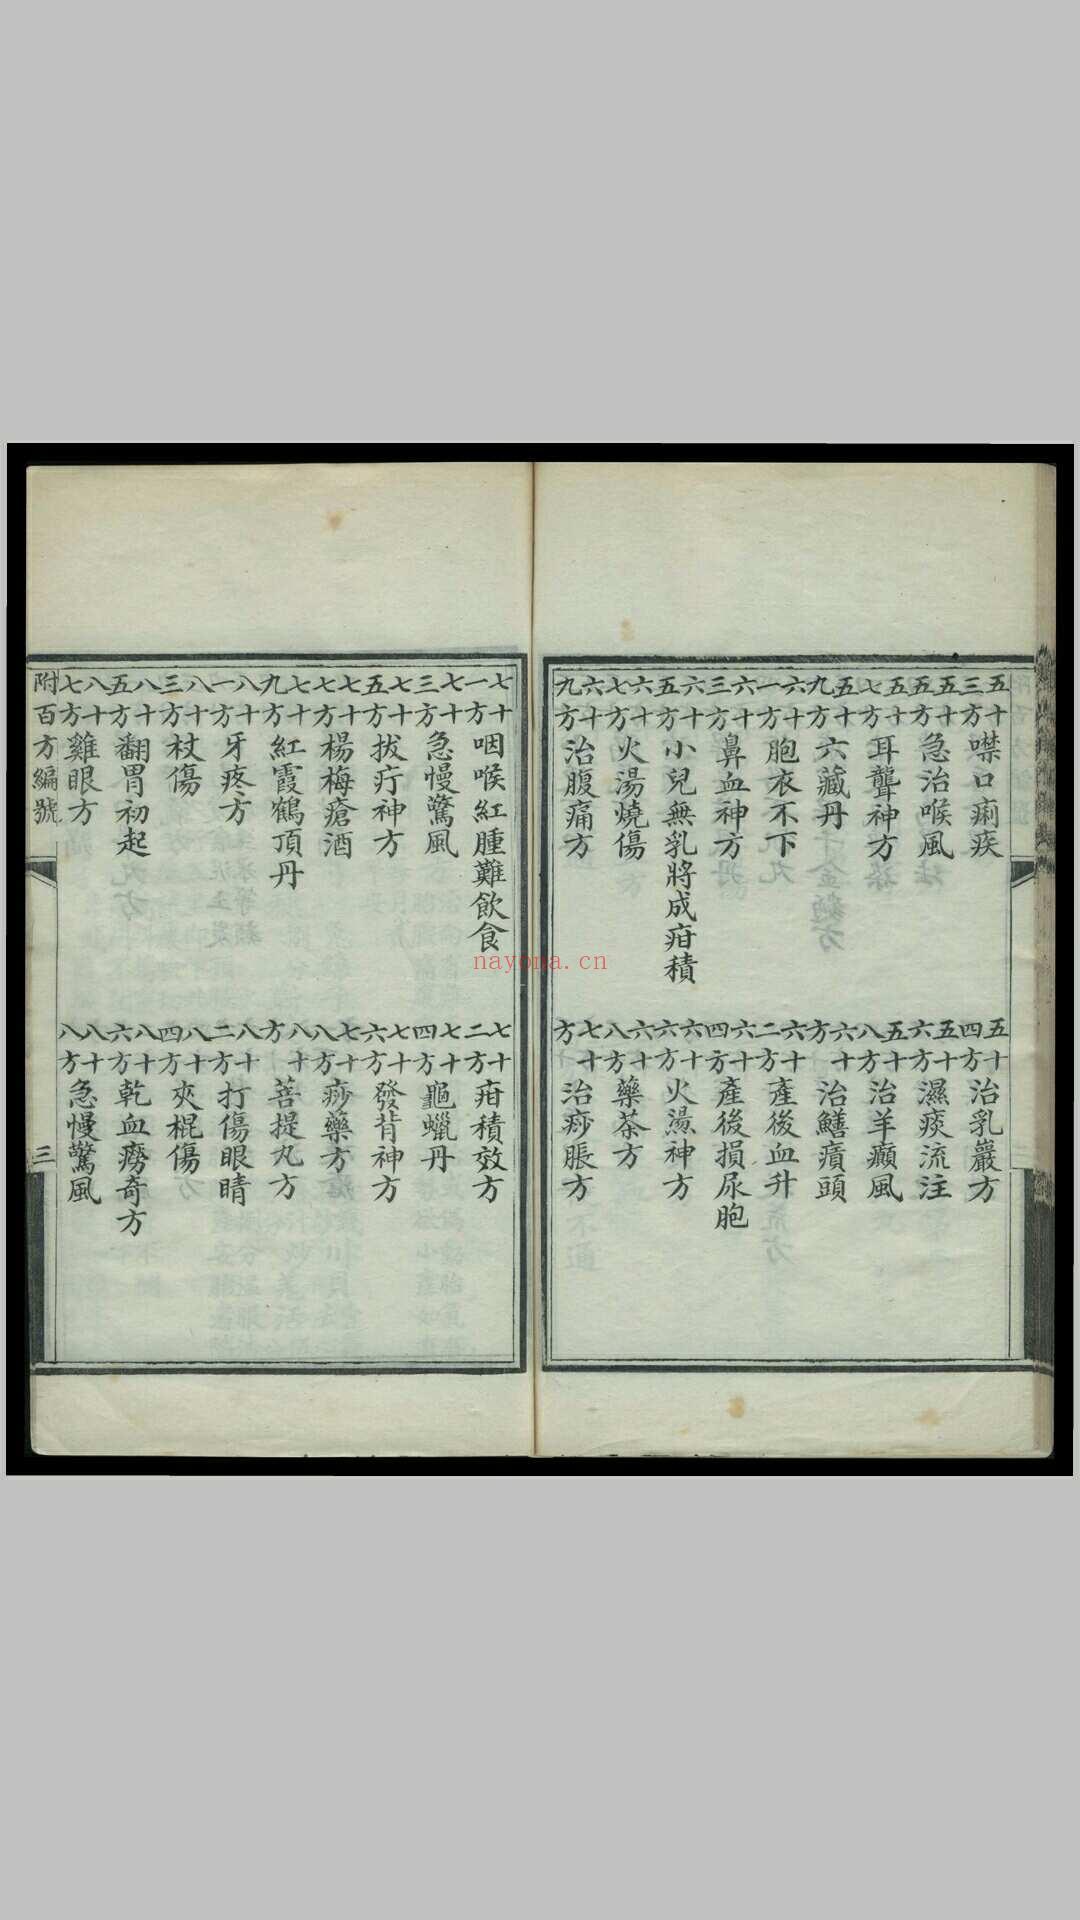 五十三方 噤口痢疾
五十四方 治乳巖方
五十五方 急治喉風
五十六方 濕痰流注
五十七方 耳聾神方
五十八方 治羊癲風
五十九方 六藏丹
六十方 治鱔㿉頭
六十一方 胞衣不下
六十二方 產後血升
六十三方 鼻血神方
六十四方 產後損尿胞
六十五方 小兒無乳將成疳積
六十六方 火燙神方
六十七方 火湯燒傷
六十八方 藥茶方
六十九方 治腹痛方
七十方 治痧脹方
七十一方 咽喉紅腫難飲食
七十二方 疳積效方
七十三方 急慢驚風
七十四方 龜蠟丹
七十五方 拔疔神方
七十六方 發背神方
七十七方 楊梅瘡酒
七十八方 痧藥方
七十九方 紅霞鶴頂丹
八十方 菩提丸方
八十一方 牙疼方
八十二方 打傷眼睛
八十三方 杖傷
八十四方 夾棍傷方
八十五方 翻胃初起
八十六方 乾血癆奇方
八十七方 雞眼方
八十八方 急慢驚風
附百方編號
三
nayona.cn